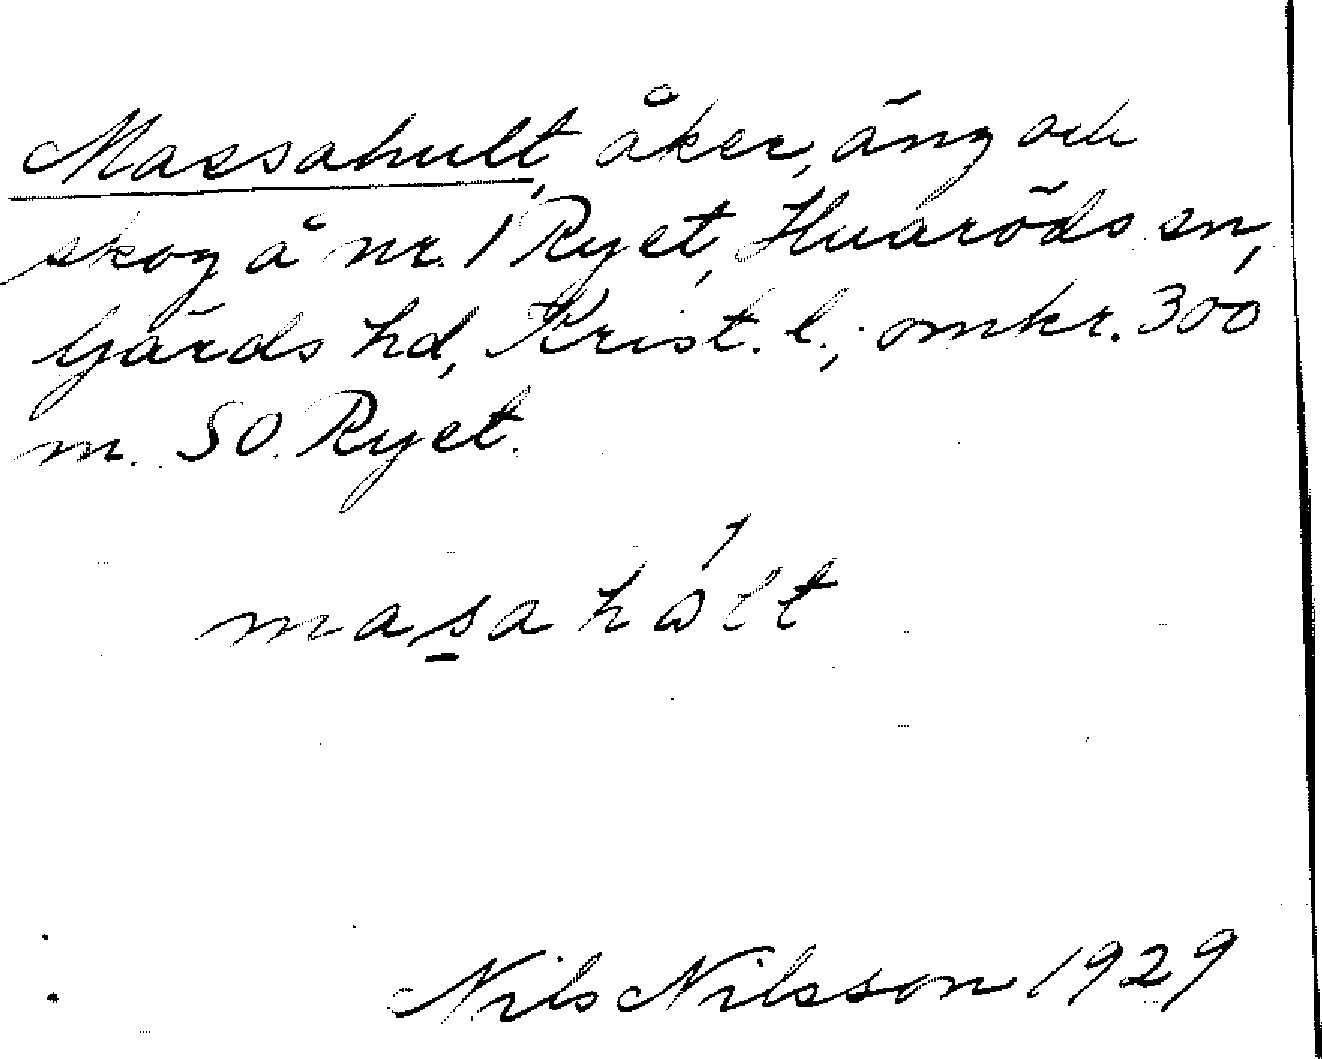 Massahult, åker, äng och
skog å nr. 1 Ryet, Huaröds sn,
Gärds hd, Krist. l.; omkr. 300
m. SO. Ryet.
masahålt
Nils Nilsson 1929